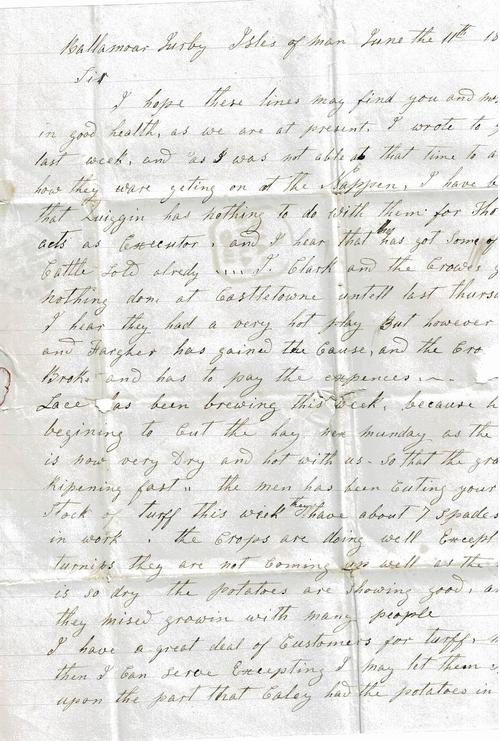 Ballamoar Jurby Isles of man June the 11th 18
Sir
I hope these lines may find you and
in good health, as we are at present. I wrote to
last week, and as I was not able at that time to
how they ware geting on at the Nappen, I have
that Quiggin has nothing to do with them for
acts as Executor. and I hear that they has got Some of
Cattle Sold alredy ..... T. Clark and the Crowes
nothing don at Castletowne untell last thurs
I hear they had a very hot play But however
and Fargher has gained the Cause, and the Cro
Broke and has to pay the expences
Lace has been brewing this week, because h
begining to Cut the hay nex munday as the
is now very Dry and hot with us - so that the gra
Ripening fast " the men has been Cuting your
Stock of turff this week they have about 7 Spades
in work . the Crops are doing well Except
turnips they are not Coming up well as the
is so dry the potatoes are showing good, an
they mised growin with many people
I have a great deal of Customers for turff,
then I Can Serve Excepting I may let them
upon the part that Caley had the potatoes in